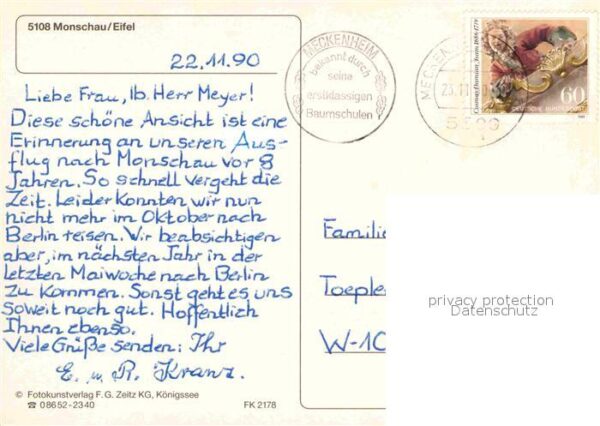 5108 Monschau/Eifel
22.11.90
Liebe Frau, lb. Herr Meyer!
Diese schöne Ansicht ist eine
Erinnerung an unseren Aus-
flug nach Monschau vor 8
Jahren. So schnell vergeht die
Zeit. Leider konnten wir nun
nicht mehr im Oktober nach
Berlin reisen. Wir beabsichtigen
aber, im nächsten Jahr in der
letzten Maiwoche nach Berlin
zu kommen. Sonst geht es uns
soweit noch gut. Hoffentlich
Ihnen ebenso.
Viele Grüße senden: Ihr
E. u. R. Kranz.
© Fotokunstverlag F. G. Zeitz KG, Königssee
☎ 08652-2340
FK 2178
MECKENHEIM
bekannt durch
seine
erstklassigen
Baumschulen
Cosmas Damian Asam 1686-1739
60
DEUTSCHE BUNDESPOST
Familie
Toeple
W-10
privacy protection
Datenschutz